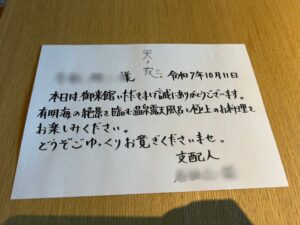 様 令和7年10月11日
本日は、御来館いただきまして誠にありがとうございます。
有明海の絶景を臨む温泉露天風呂と極上のお料理を
お楽しみください。
どうぞごゆっくりお寛ぎくださいませ。
支配人